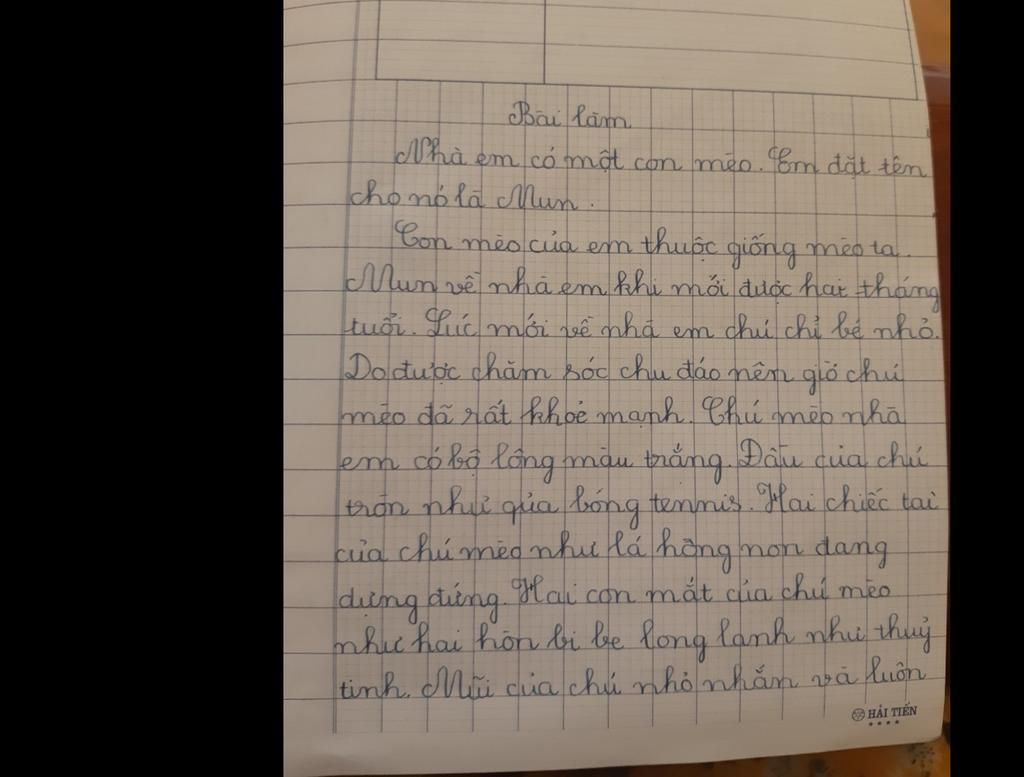 Bài làm
Nhà em có một con mèo. Em đặt tên
cho nó là Mun.
Con mèo của em thuộc giống mèo ta.
Mun về nhà em khi mới được hai tháng
tuổi. Lúc mới về nhà em chú chỉ bé nhỏ.
Do được chăm sóc chu đáo nên giờ chú
mèo đã rất khoẻ mạnh. Chú mèo nhà
em có bộ lông màu trắng. Đầu của chú
tròn như qủa bóng tennis. Hai chiếc tai
của chú mèo như lá hồng non đang
dựng đứng. Hai con mắt của chú mèo
như hai hòn bi be long lanh như thuỷ
tinh. Mũi của chú nhỏ nhắn và luôn
HẢI TIẾN